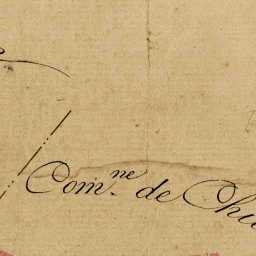 Com.ne de Chu